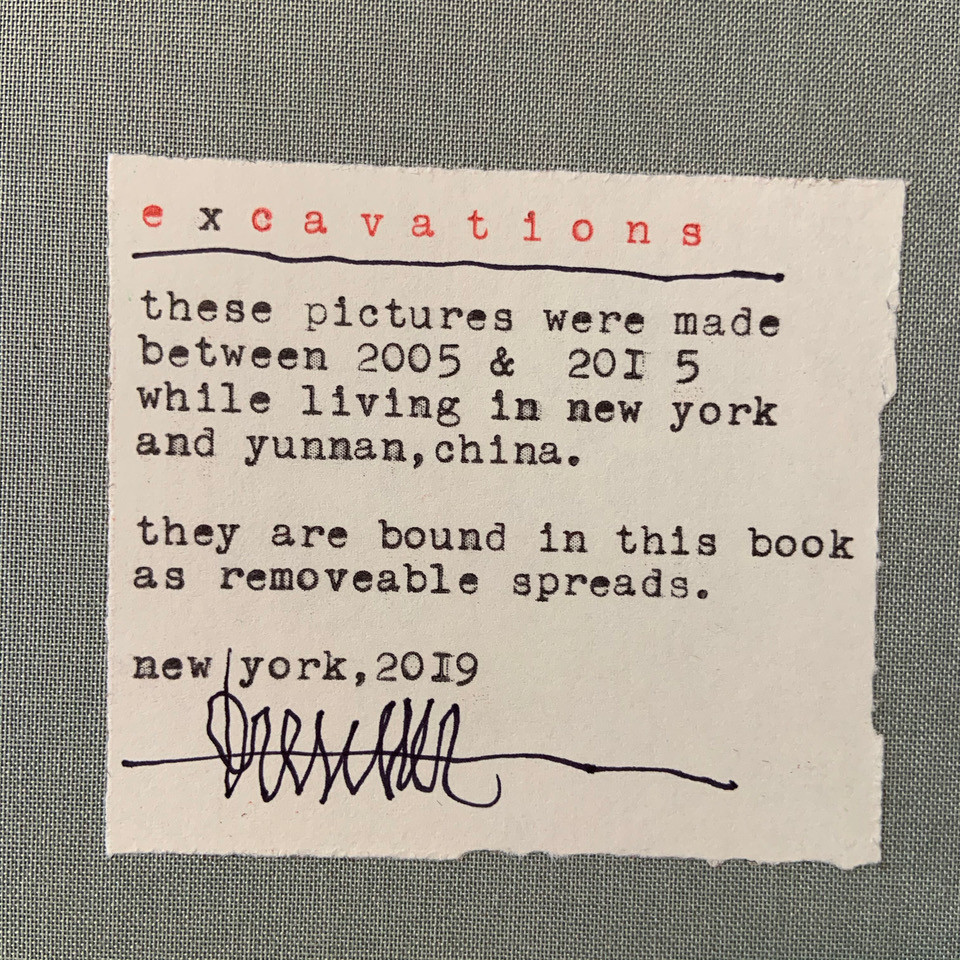 excavations
these pictures were made
between 2005 & 20I 5
while living in new york
and yunnan,china.
they are bound in this book
as removeable spreads.
new york,20I9